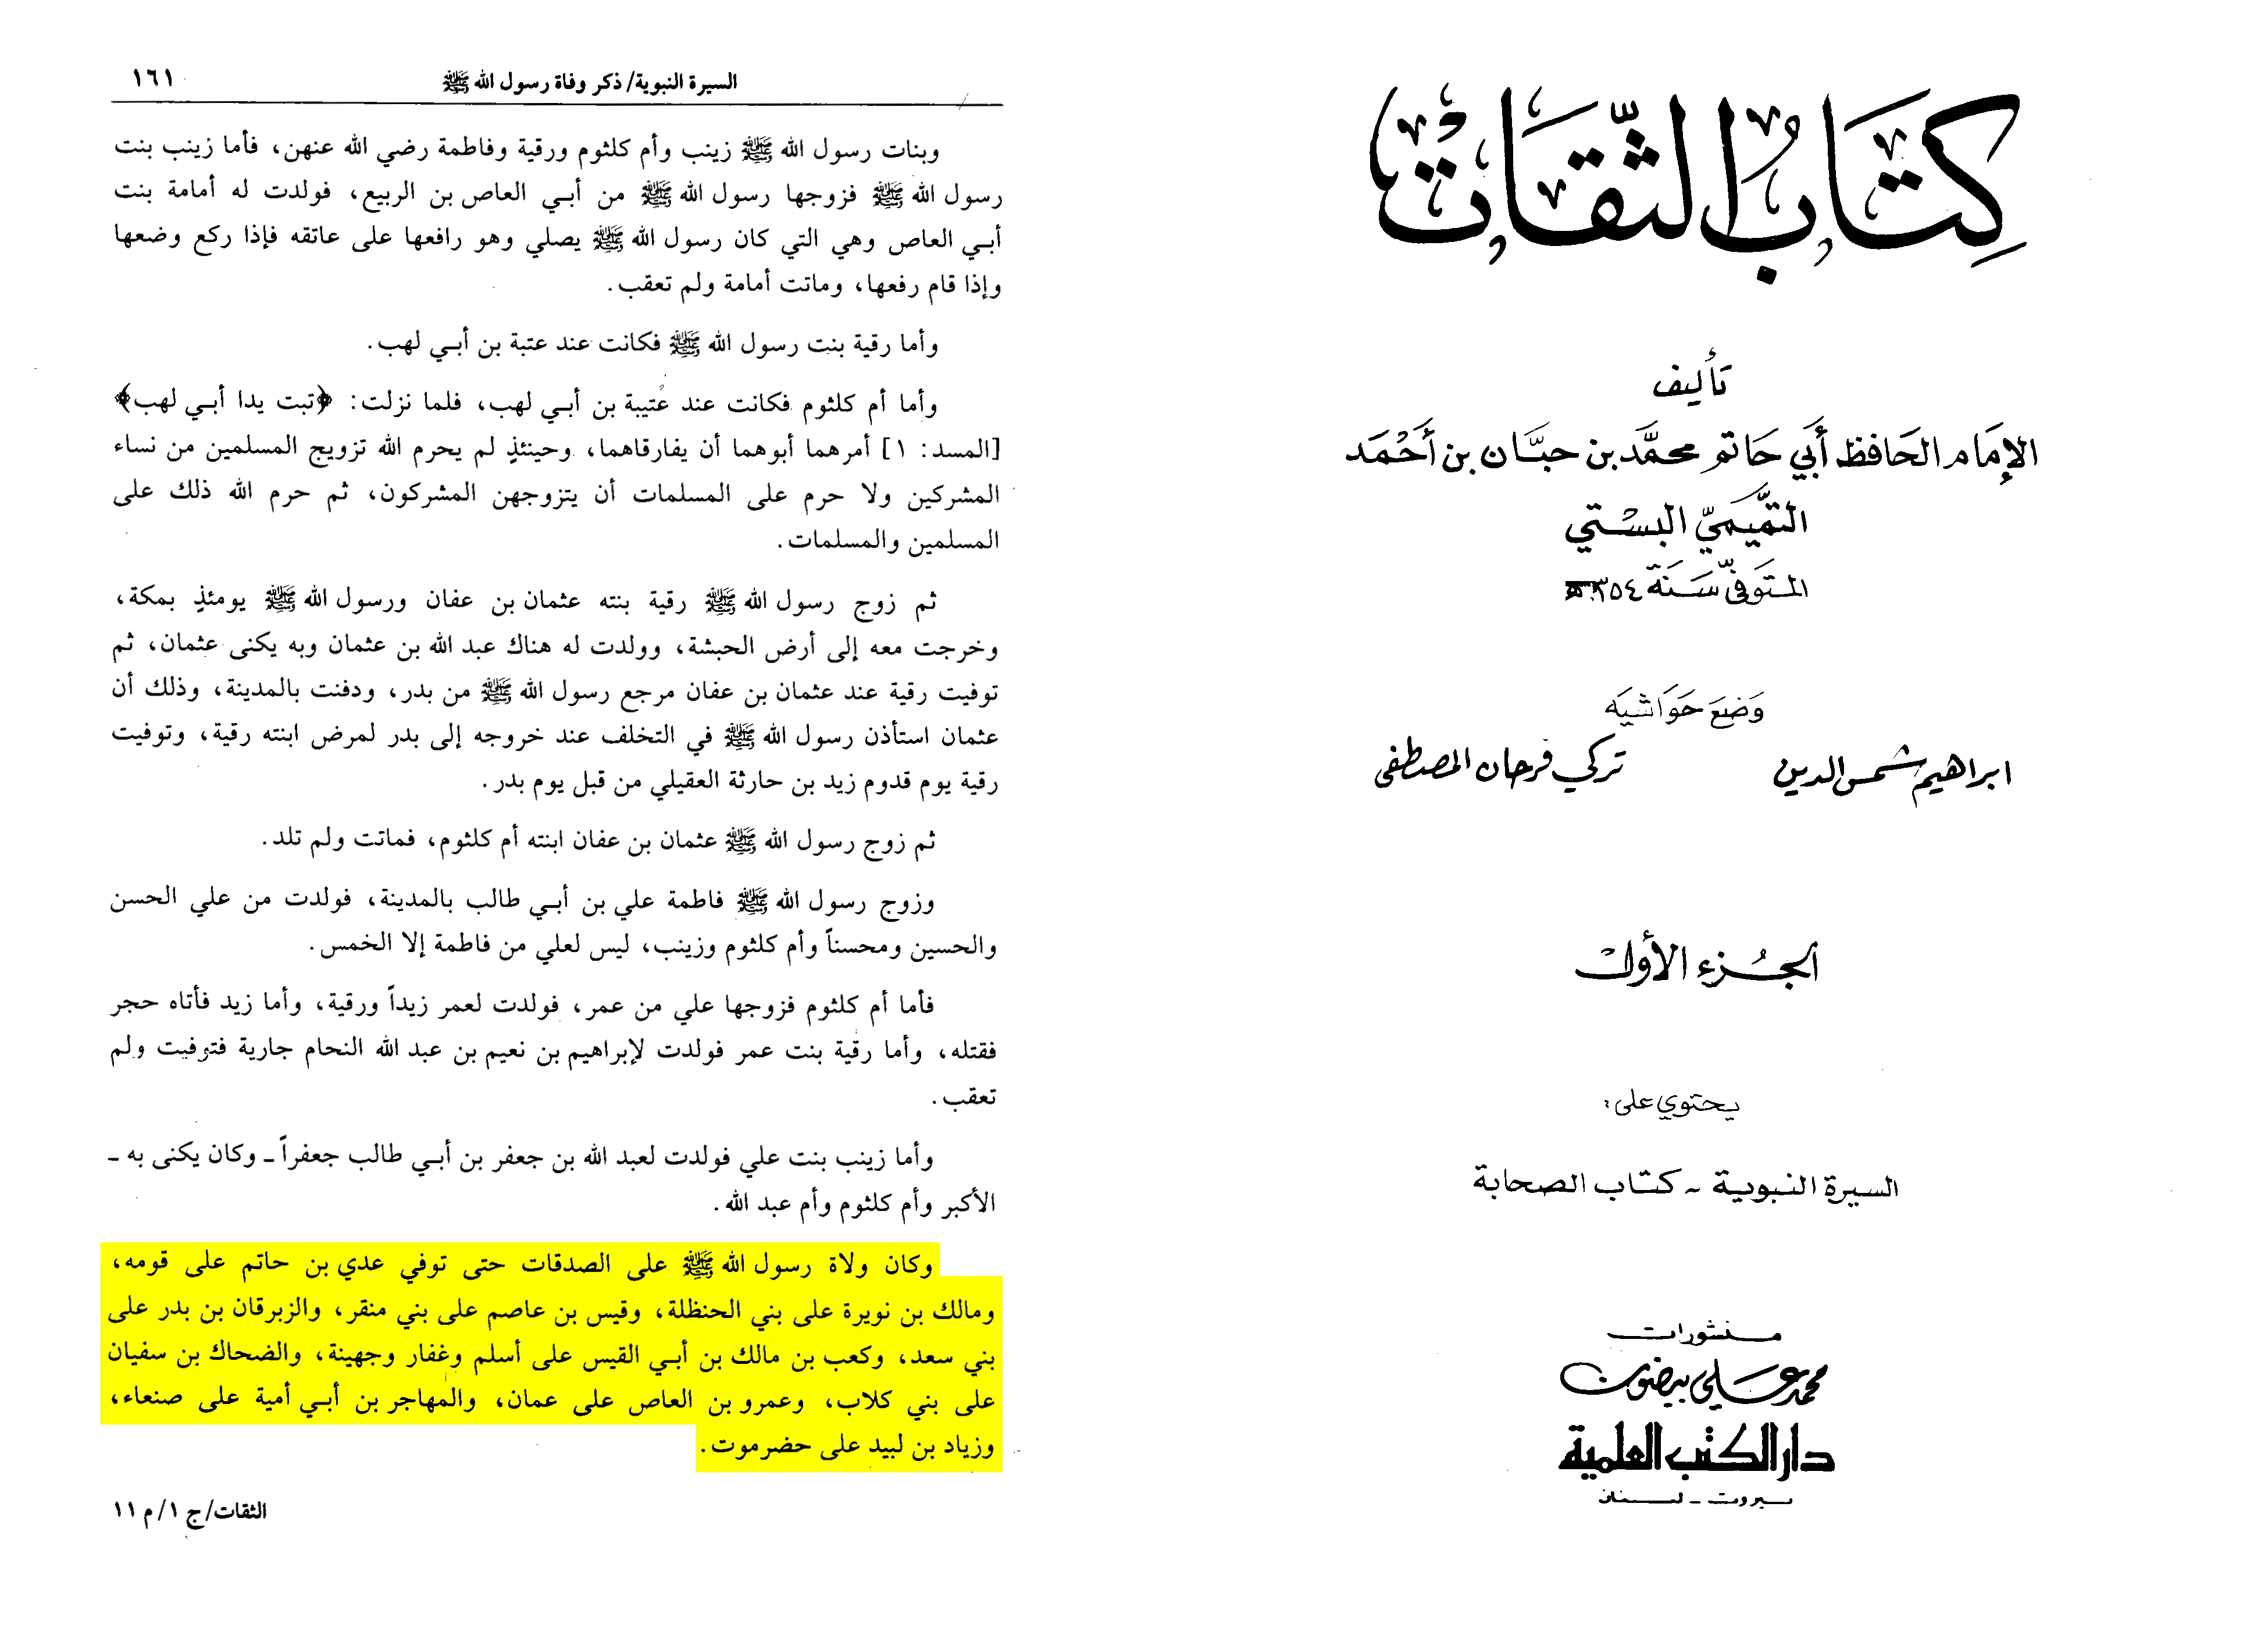 كتاب الثقات
تأليف
الإمام الحافظ أبي حاتم محمد بن حبان بن أحمد
التميمي البستي
المتوفى سنة ٣٥٤ هـ
وضع حواشيه
ابراهيم شمس الدين تركي فرحان المصطفى
الجزء الأول
يحتوي على:
السيرة النبوية - كتاب الصحابة
منشورات
محمد علي بيضون
دار الكتب العلمية
بيروت - لبنان
السيرة النبوية/ ذكر وفاة رسول الله ﷺ ١٦١
وبنات رسول الله ﷺ زينب وأم كلثوم ورقية وفاطمة رضي الله عنهن، فأما زينب بنت
رسول الله ﷺ فزوجها رسول الله ﷺ من أبي العاص بن الربيع، فولدت له أمامة بنت
أبي العاص وهي التي كان رسول الله ﷺ يصلي وهو رافعها على عاتقه فإذا ركع وضعها
وإذا قام رفعها، وماتت أمامة ولم تعقب.
وأما رقية بنت رسول الله ﷺ فكانت عند عتبة بن أبي لهب.
وأما أم كلثوم فكانت عند عتيبة بن أبي لهب، فلما نزلت: ﴿تبت يدا أبي لهب﴾
[المسد: ١] أمرهما أبوهما أن يفارقاهما، وحينئذٍ لم يحرم الله تزويج المسلمين من نساء
المشركين ولا حرم على المسلمات أن يتزوجهن المشركون، ثم حرم الله ذلك على
المسلمين والمسلمات.
ثم زوج رسول الله ﷺ رقية بنته عثمان بن عفان ورسول الله ﷺ يومئذٍ بمكة،
وخرجت معه إلى أرض الحبشة، وولدت له هناك عبد الله بن عثمان وبه يكنى عثمان، ثم
توفيت رقية عند عثمان بن عفان مرجع رسول الله ﷺ من بدر، ودفنت بالمدينة، وذلك أن
عثمان استأذن رسول الله ﷺ في التخلف عند خروجه إلى بدر لمرض ابنته رقية، وتوفيت
رقية يوم قدوم زيد بن حارثة العقيلي من قبل يوم بدر.
ثم زوج رسول الله ﷺ عثمان بن عفان ابنته أم كلثوم، فماتت ولم تلد.
وزوج رسول الله ﷺ فاطمة علي بن أبي طالب بالمدينة، فولدت من علي الحسن
والحسين ومحسناً وأم كلثوم وزينب، ليس لعلي من فاطمة إلا الخمس.
فأما أم كلثوم فزوجها علي من عمر، فولدت لعمر زيداً ورقية، وأما زيد فأتاه حجر
فقتله، وأما رقية بنت عمر فولدت لإبراهيم بن نعيم بن عبد الله النحام جارية فتوفيت ولم
تعقب.
وأما زينب بنت علي فولدت لعبد الله بن جعفر بن أبي طالب جعفراً ـ وكان يكنى به ـ
الأكبر وأم كلثوم وأم عبد الله.
وكان ولاة رسول الله ﷺ على الصدقات حتى توفي عدي بن حاتم على قومه،
ومالك بن نويرة على بني الحنظلة، وقيس بن عاصم على بني منقر، والزبرقان بن بدر على
بني سعد، وكعب بن مالك بن أبي القيس على أسلم وغفار وجهينة، والضحاك بن سفيان
على بني كلاب، وعمرو بن العاص على عمان، والمهاجر بن أبي أمية على صنعاء،
وزياد بن لبيد على حضرموت.
الثقات/ ج ١/ م ١١